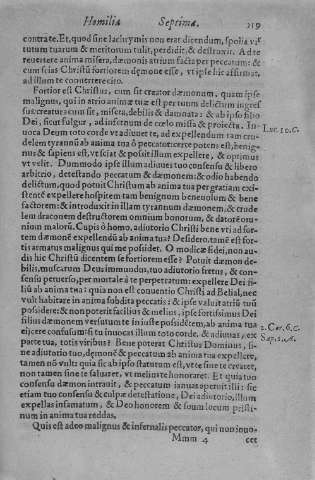 Homilia Septima. 219
contraretc. Et, quod sine lachrymis non erat dicendum, spolia vir
tutum tuarum & meritorum tulit, perdidit, & destruxit. A te
reuertere anima misera, dæmonis atrium facta per peccatum: &
cum scias Christũ fortiorem dęmone esse, vt ipse hic affirmat,
ad illum te conuertere cito.
Fortior est Christus, cum sit creator dæmonum, quam ipse
malignus, qui in atrio animæ tuæ est per tuum delictum ingres
sus: creatura cum sit, misera, debilis & damnata: & ab ipso filio
Dei, sicut fulgur, ad infernum de cœlo missa & proiecta. In-
uoca Deum toto corde vt adiuuet te, ad expellendum tam cru-
delem tyrannũ ab anima tua ô peccator: certe potens est, benig-
nus & sapiens est, vt sciat & possit illum expellere, & optimus
vt velit. Dummodo ipse illum adiuues tuo consensu & libero
arbitrio, detestando peccatum & dæmonem: & odio habendo
delictum, quod potuit Christum ab anima tua per gratiam exi-
stentẽ expellere hospitem tam benignum beneuolum & bene
factorem: & introduxit in illam tyrannum dæmonem, & crude
lem draconem destructorem omnium bonorum, & datorẽ om-
nium malorũ. Cupis ô homo, adiutorio Christi bene vti ad for-
tem dæmonẽ expellendũ ab anima tua? Desidero, tamẽ est for-
tis armatus malignus qui me possidet. O modicæ fidei, non au-
dis hic Christũ dicentem se fortiorem esse? Potuit dæmon de-
bilis, muscarum Deus immundus, tuo adiutorio fretus, & con-
sensu peruerso, per mortale à te perpetratum: expellere Dei fi-
liũ ab anima tua? quia non est conuentio Christi ad Belial, nec
vult habitare in anima subdita peccatis: & ipse valuit atriũ tuũ
possidere: & non poterit facilius & melius, ipse fortissimus Dei
filius dæmonem versutum te iniuste possidẽtem, ab anima tua
eijcere confusum: si tu inuocas illum toto corde, & adiuuas, ex
parte tua, totis viribus? Bene poterat Christus Dominus, si-
ne adiutorio tuo, dęmonẽ & peccatum ab anima tua expellere,
tamen nõ vult: quia sic ab ipso statutum est, vt te sine te crearet,
non tamen sine te saluaret, vt melius te honoraret. Et quia tuo
consensu dæmon intrauit, & peccatum ianuas operuit illi: sic
etiam tuo consensu & culpæ detestatione, Dei adiutorio, illum
expellas infamatum, & Deo honorem & suum locum pristi-
num in anima tua reddas.
Quis est adeo malignus & infernalis peccator, qui non inuo-
Mmm 4 cet
Luc. 10. C.
2. Cor. 6. C.
Sap. 1. A.